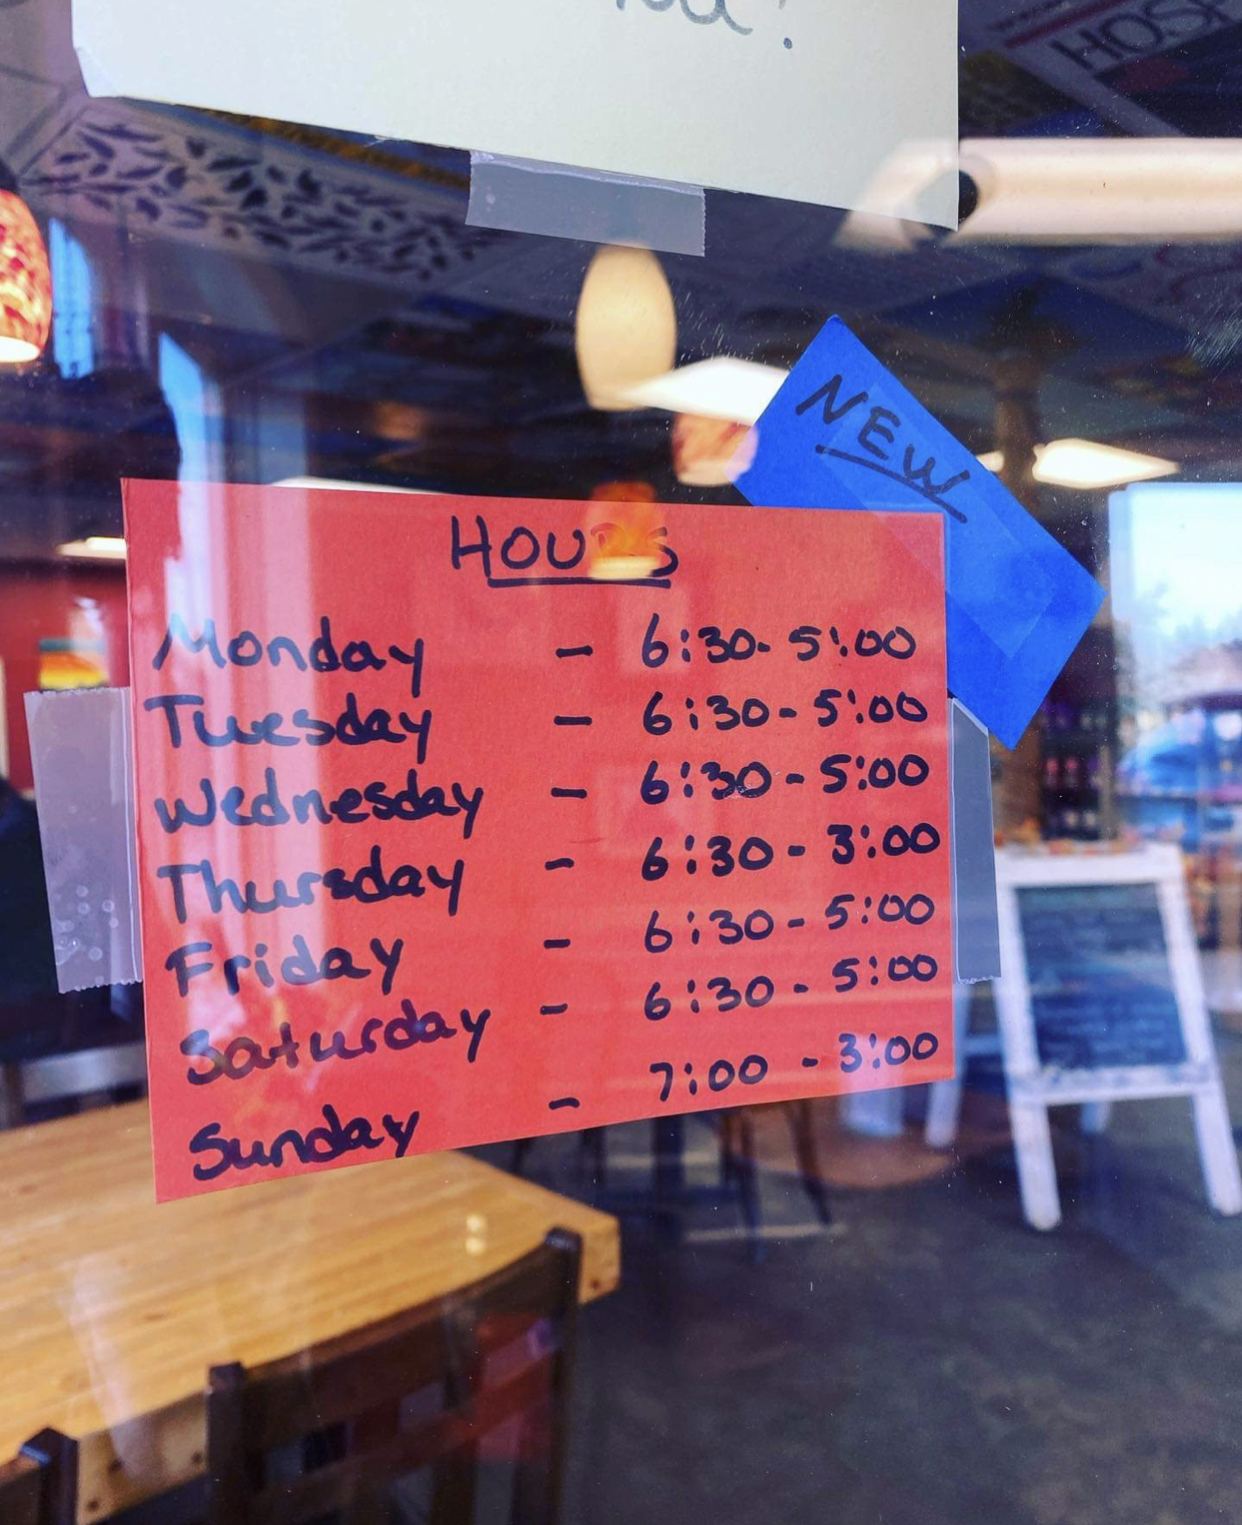 HOSK
NEW
HOURS
Monday - 6:30-5:00
Tuesday - 6:30-5:00
Wednesday - 6:30-5:00
Thursday - 6:30-3:00
Friday - 6:30-5:00
Saturday - 6:30-5:00
Sunday - 7:00-3:00